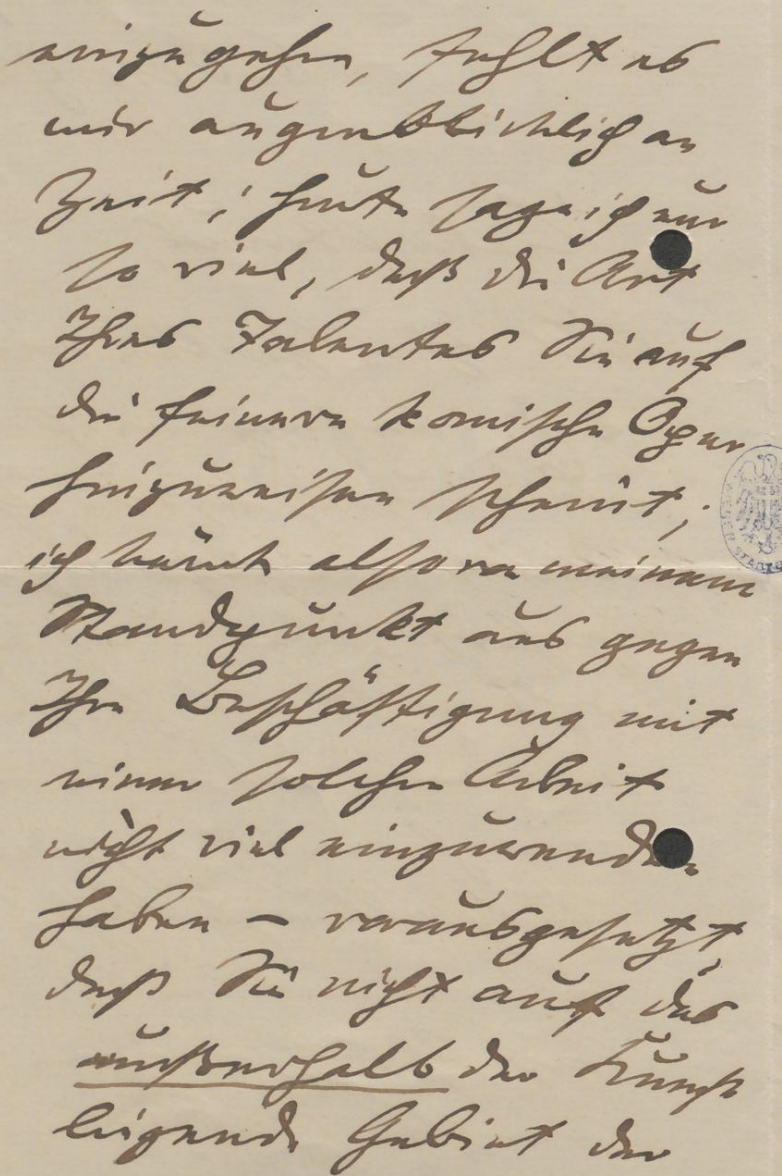 einzugehen, fehlt es
mir augenblicklich an
Zeit; heute sage ich nur
so viel, daß die Art
Ihres Talentes Sie auf
die feinere komische Oper
hinzuweisen scheint;
ich würde also von meinem
Standpunkt aus gegen
Ihre Beschäftigung mit
einer solchen Arbeit
nicht viel einzuwenden
haben – vorausgesetzt,
daß Sie nicht auf das
außerhalb der Kunst
liegende Gebiet der